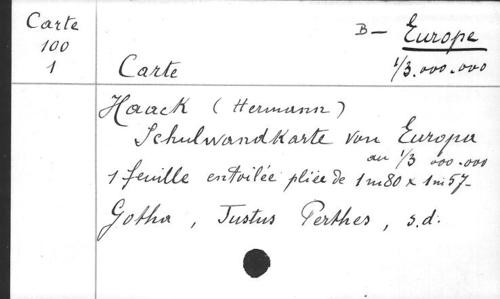 Carte
100
1
B — Europe
1/3.000.000
Carte
Haack (Hermann)
Schulwandkarte von Europa
au 1/3 000.000
1 feuille entoilée pliée de 1m80 x 1m57-
Gotha, Justus Perthes, s.d.